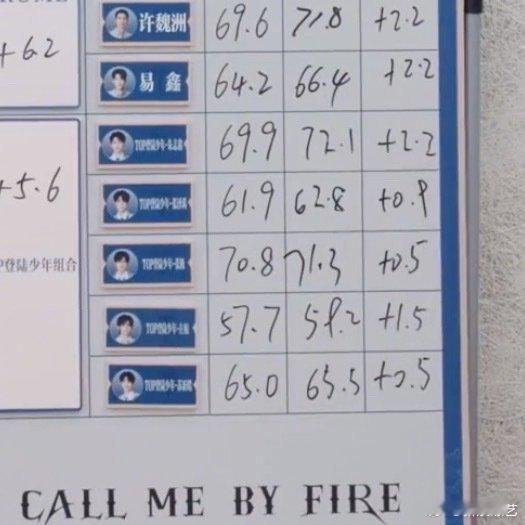 +6.2
许魏洲 69.6 71.8 +2.2
易鑫 64.2 66.4 +2.2
TOP登陆少年-朱志鑫 69.9 72.1 +2.2
+5.6
TOP登陆少年- 61.9 62.8 +0.9
P登陆少年组合
TOP登陆少年- 70.8 71.3 +0.5
TOP登陆少年- 57.7 59.2 +1.5
TOP登陆少年-苏新皓 65.0 65.5 +0.5
CALL ME BY FIRE
艺